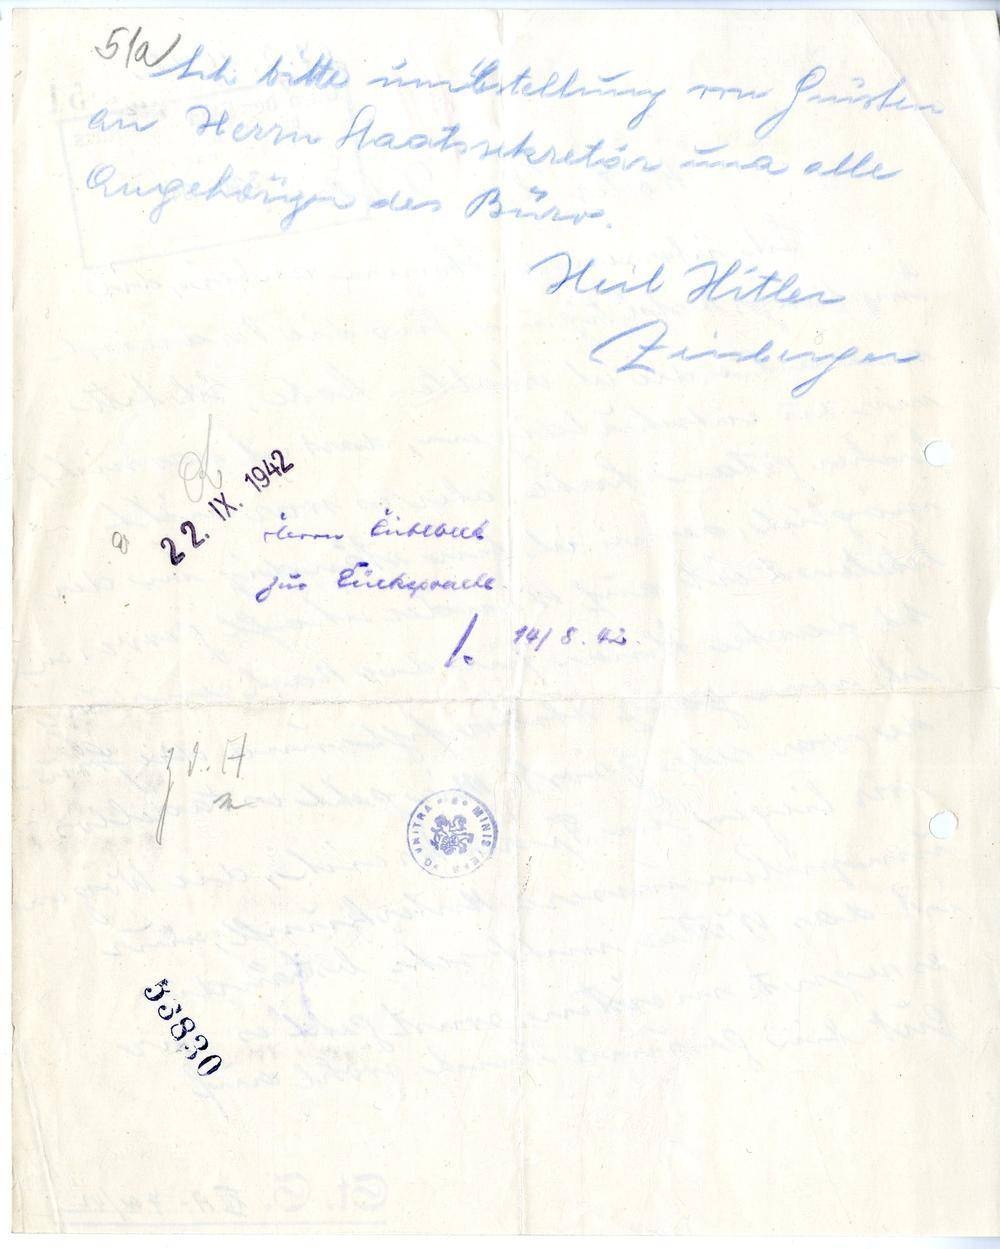 51a
Ich bitte um Bestellung von Grüssen
an Herrn Staatssekretär und alle
Angehörigen des Büros.
Heil Hitler
22. IX. 1942
Herrn
zur Rücksprache.
14/8. 42.
z. d. A
MINISTERSTVO VNITRA
53830